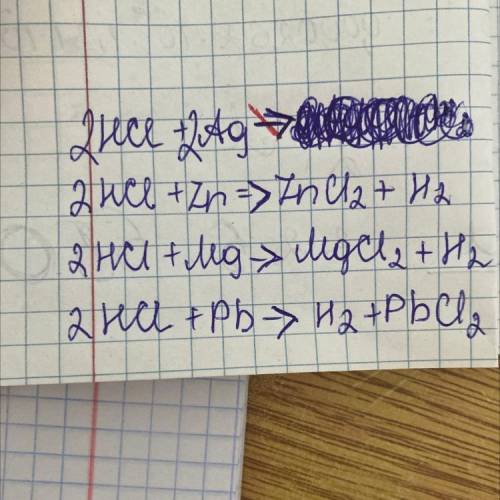 2HCl + 2Ag ⇒
2HCl + Zn => ZnCl₂ + H₂
2HCl + Mg -> MgCl₂ + H₂
2HCl + Pb -> H₂ + PbCl₂